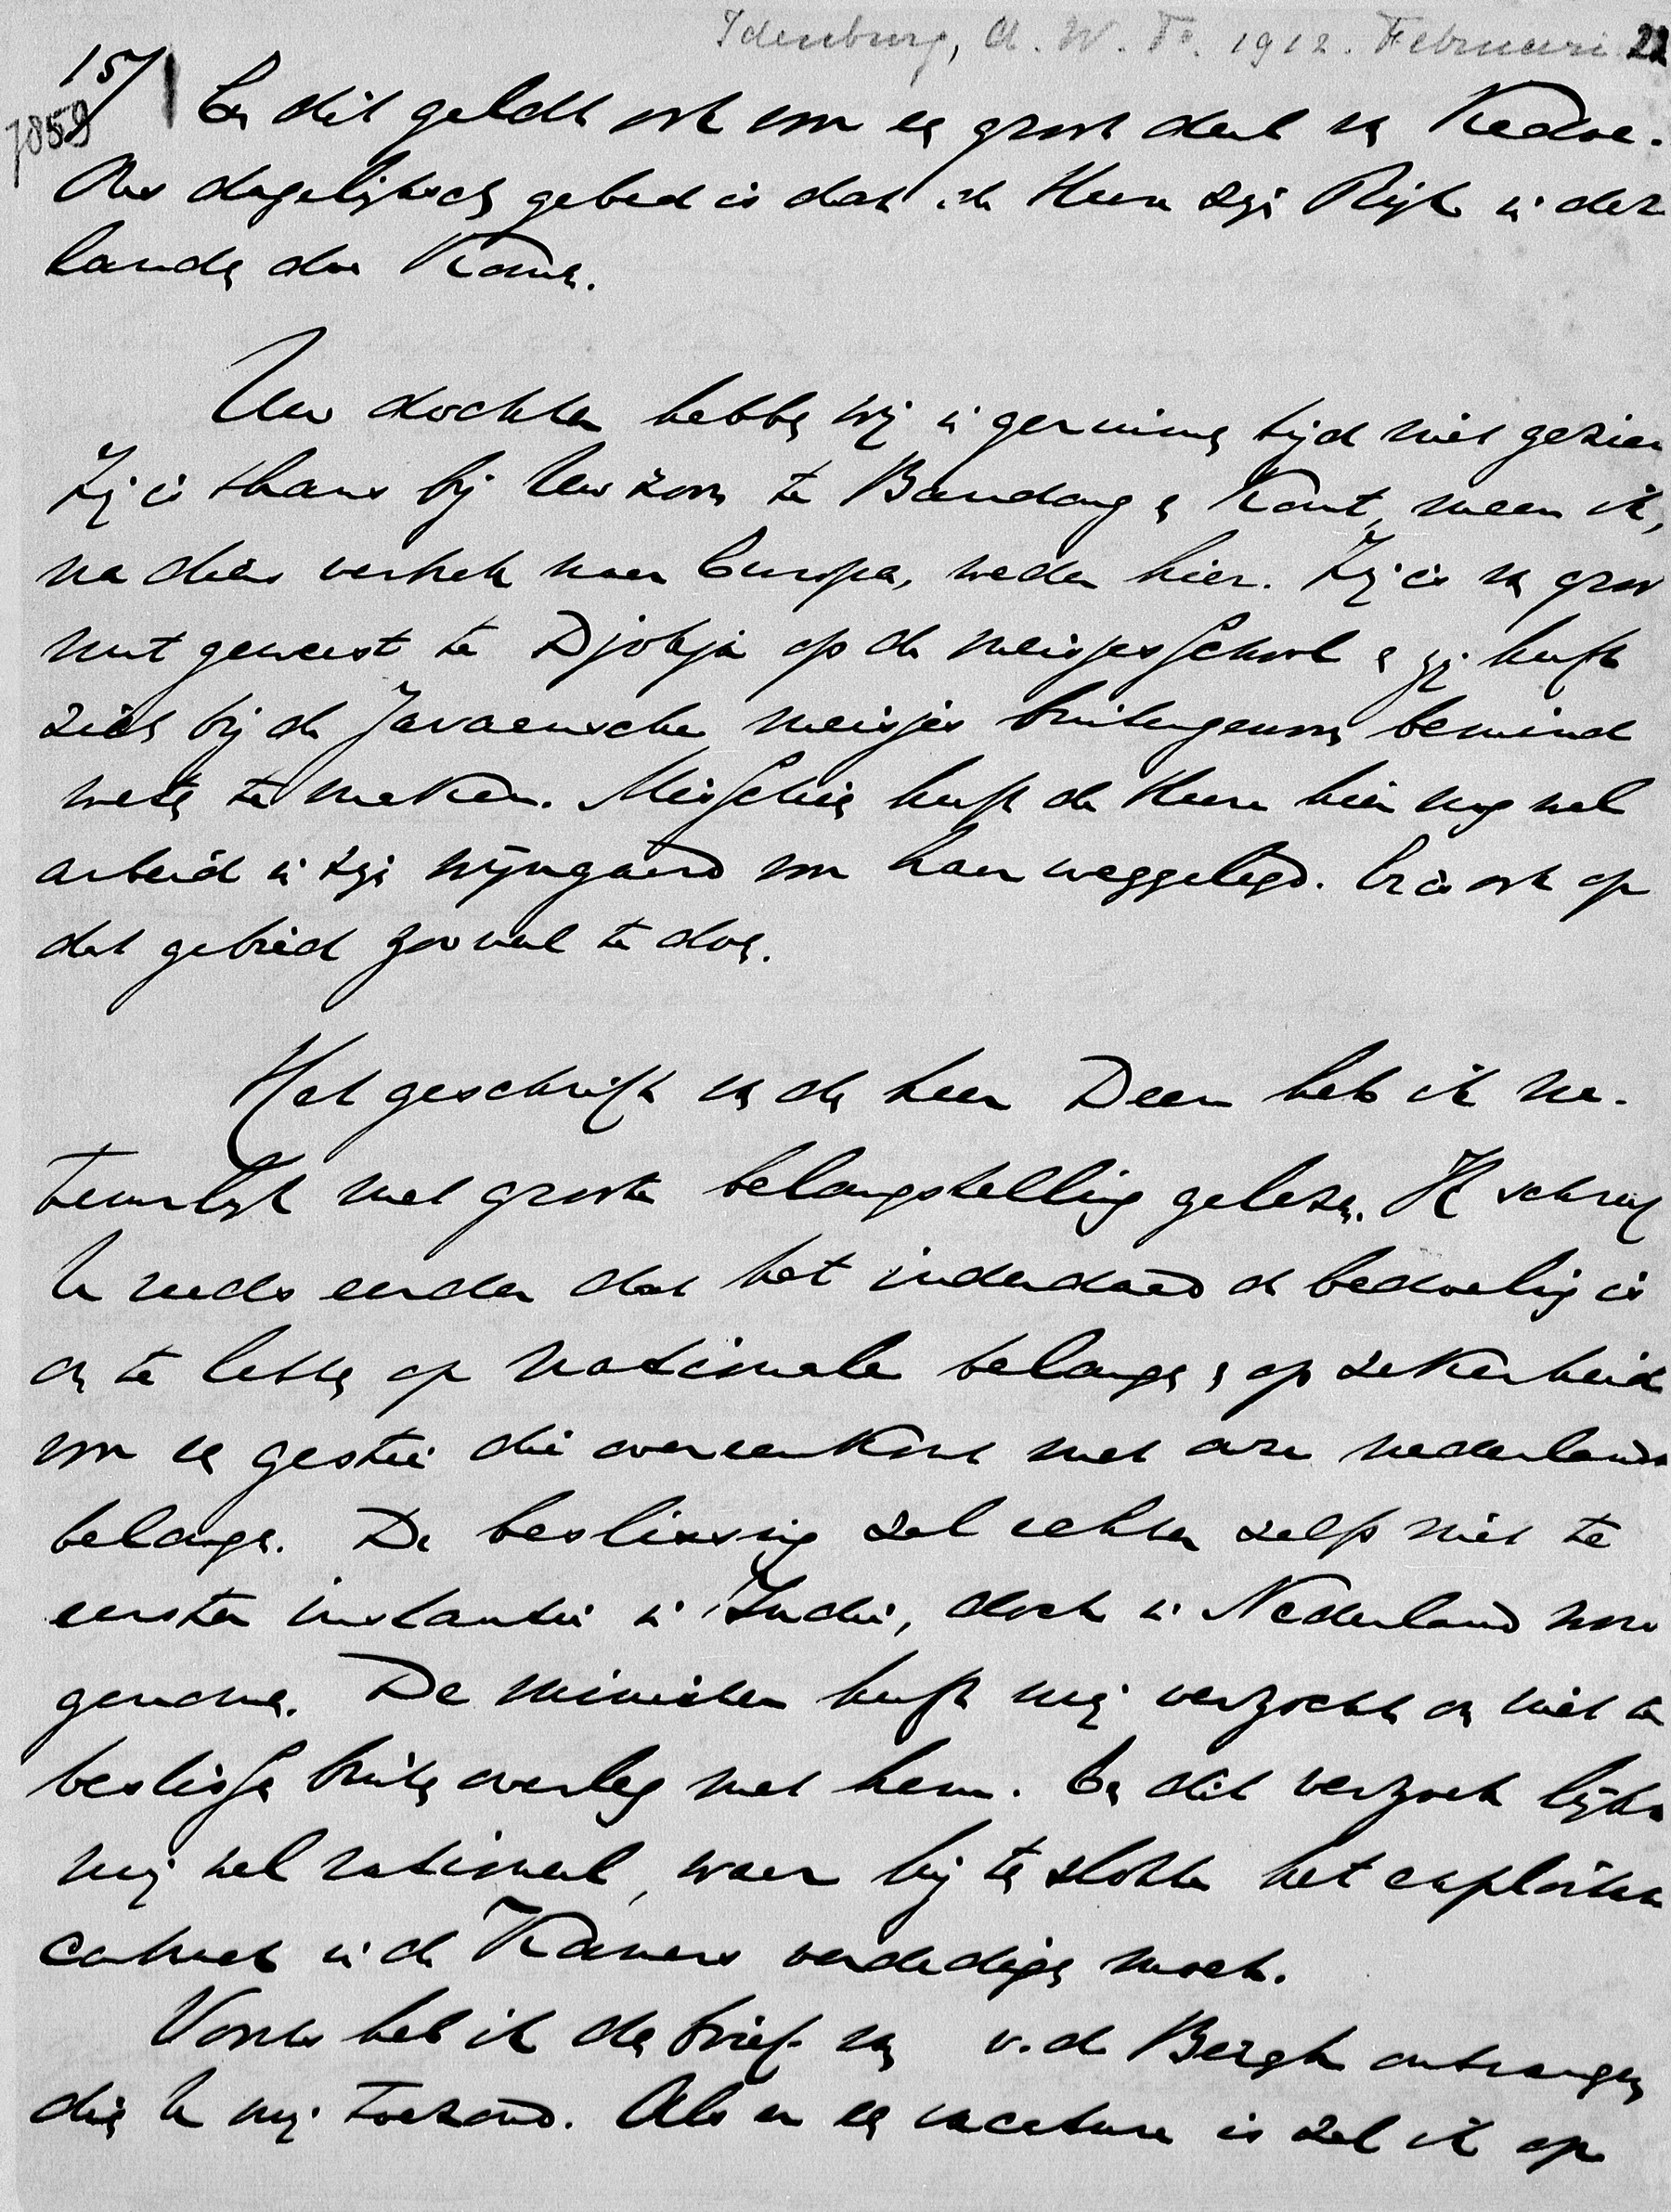 Idenburg, A. W. F. 1912. Februari 22
15/
7859
En dit geldt ook voor een groot deel van Kedoe.
Ons dagelijksch gebed is dat de Heere zijn Rijk in deze
landen doe komen.
Uw dochter hebben wij in geruimen tijd niet gezien
Zij is thans bij Uw zoon te Bandong en komt, meen ik,
na diens vertrek naar Europa, weder hier. Zij is van groot
nut geweest te Djokja op de meisjesschool en zij heeft
zich bij de Javaansche meisjes buitengewoon bemind
weten te maken. Misschien heeft de Heere hier nog wel
arbeid in zijn wijngaard voor haar weggelegd. Er is ook op
dat gebied zooveel te doen.
Het geschrift van den heer Deen heb ik na-
tuurlijk met groote belangstelling gelezen. Ik schreef
U reeds eerder dat het inderdaad de bedoeling is
om te letten op nationale belangen en op zekerheid
voor een gestie die overeenkomt met onze nederlandse
belangen. De beslissing zal echter zelfs niet te
eerster instantie in Indië, doch in Nederland worden
genomen. De minister heeft mij verzocht om niet te
beslissen buiten overleg met hem. En dit verzoek lijkt
mij wel rationeel, waar hij ten slotte het exploitatie
contract in de Kamers verdedigen moet.
Voorts heb ik den brief van v.d Bergh ontvangen
dien U mij toezond. Als er een vacature is zal ik op